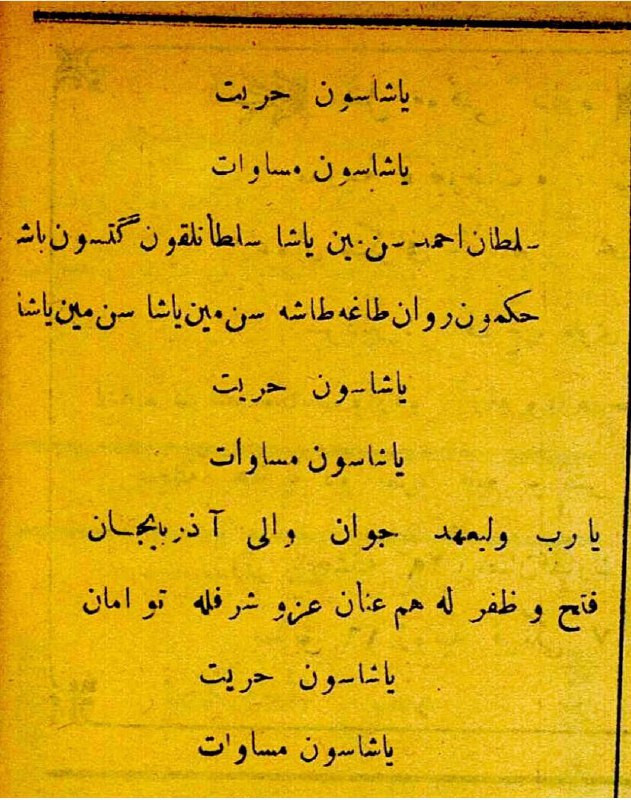 یاشاسون حریت
یاشاسون مساوات
سلطان احمد سن مین یاشا سلطانلقون گتسون باشه
حکمون روان طاغه طاشه سن مین یاشا سن مین یاشا
یاشاسون حریت
یاشاسون مساوات
یارب ولیعهد جوان والی آذربایجان
فتح و ظفر له هم عنان عزو شرفله توامان
یاشاسون حریت
یاشاسون مساوات